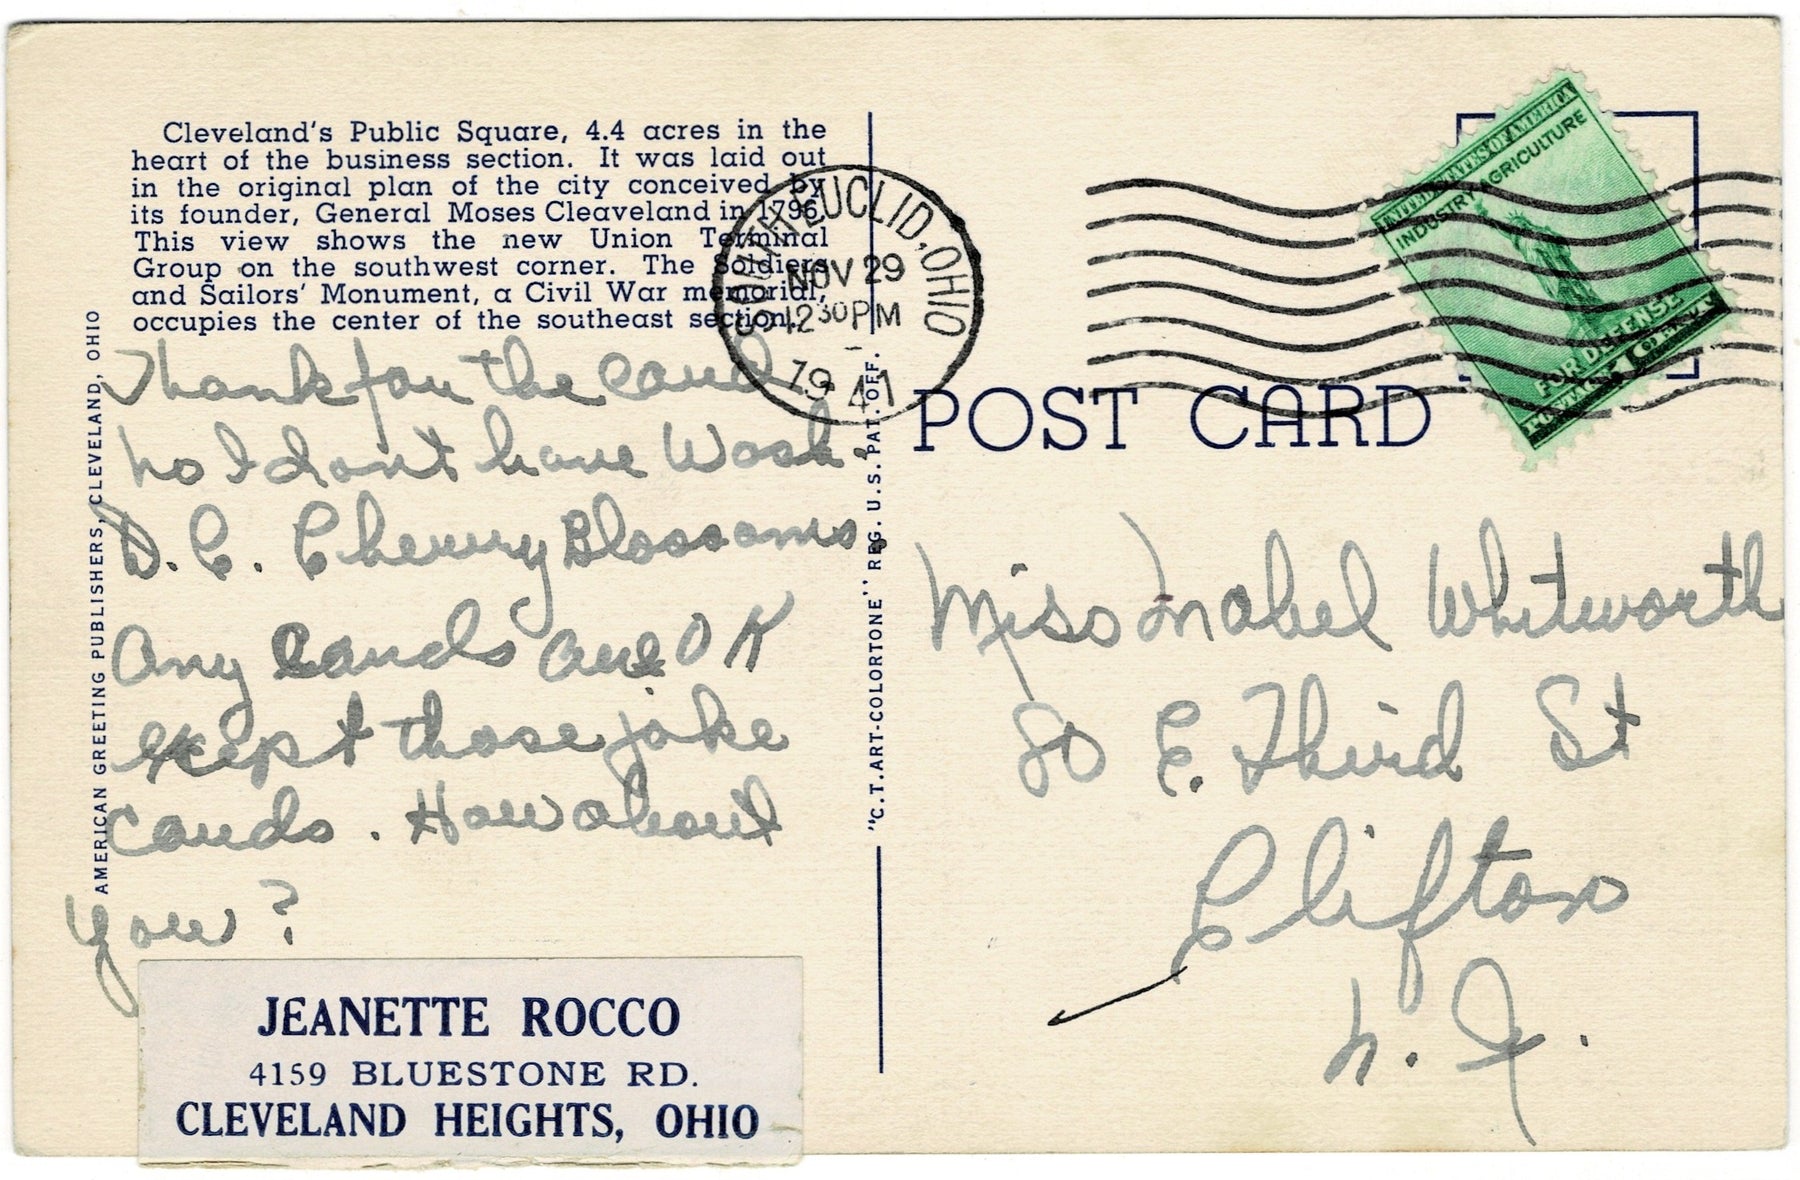 Cleveland's Public Square, 4.4 acres in the
heart of the business section. It was laid out
in the original plan of the city conceived by
its founder, General Moses Cleaveland in 1796.
This view shows the new Union Terminal
Group on the southwest corner. The Soldiers
and Sailors' Monument, a Civil War memorial,
occupies the center of the southeast section.
Thank for the card
No I don't have Wash.
D.C. Cherry Blossoms.
Any cards are OK
exept those joke
cards. How about
you?
AMERICAN GREETING PUBLISHERS, CLEVELAND, OHIO
JEANETTE ROCCO
4159 BLUESTONE RD.
CLEVELAND HEIGHTS, OHIO
"C.T. ART-COLORTONE" REG. U.S. PAT. OFF.
SOUTH EUCLID, OHIO
NOV 29
12 30 PM
1941
UNITED STATES OF AMERICA
INDUSTRY AGRICULTURE
FOR DEFENSE
POST CARD
Miss Mabel Whitworth
80 E. Third St
Clifton
N.J.